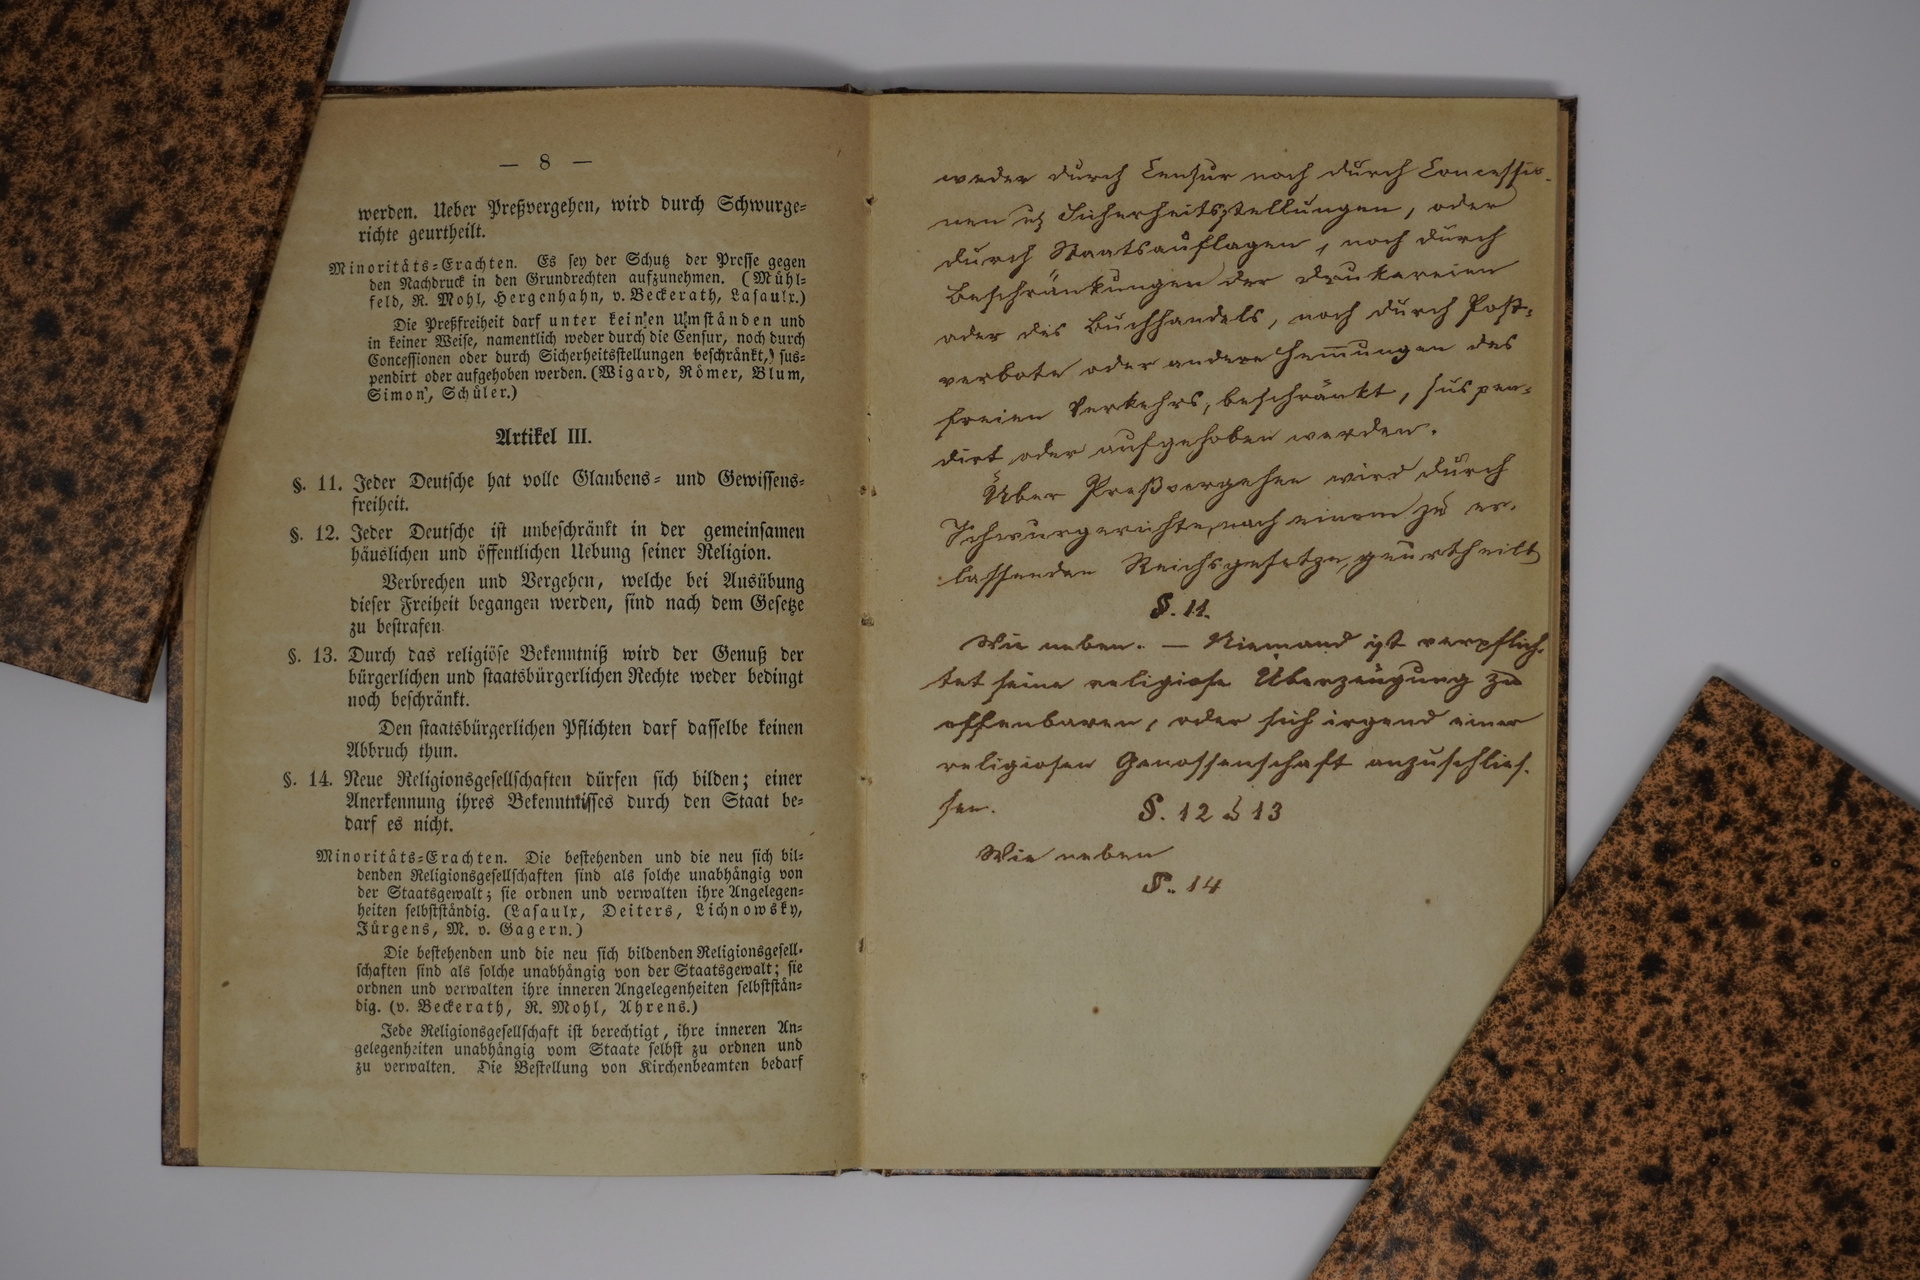 — 8 —
werden. Ueber Preßvergehen, wird durch Schwurge-
richte geurtheilt.
Minoritäts-Erachten. Es sey der Schutz der Presse gegen
den Nachdruck in den Grundrechten aufzunehmen. (Mühl-
feld, R. Mohl, Hergenhahn, v. Beckerath, Lasaulx.)
Die Preßfreiheit darf unter keinen Umständen und
in keiner Weise, namentlich weder durch die Censur, noch durch
Concessionen oder durch Sicherheitsstellungen beschränkt, sus-
pendirt oder aufgehoben werden. (Wigard, Römer, Blum,
Simon, Schüler.)
Artikel III.
§. 11. Jeder Deutsche hat volle Glaubens- und Gewissens-
freiheit.
§. 12. Jeder Deutsche ist unbeschränkt in der gemeinsamen
häuslichen und öffentlichen Uebung seiner Religion.
Verbrechen und Vergehen, welche bei Ausübung
dieser Freiheit begangen werden, sind nach dem Gesetze
zu bestrafen
§. 13. Durch das religiöse Bekenntniß wird der Genuß der
bürgerlichen und staatsbürgerlichen Rechte weder bedingt
noch beschränkt.
Den staatsbürgerlichen Pflichten darf dasselbe keinen
Abbruch thun.
§. 14. Neue Religionsgesellschaften dürfen sich bilden; einer
Anerkennung ihres Bekenntnisses durch den Staat be-
darf es nicht.
Minoritäts-Erachten. Die bestehenden und die neu sich bil-
denden Religionsgesellschaften sind als solche unabhängig von
der Staatsgewalt; sie ordnen und verwalten ihre Angelegen-
heiten selbstständig. (Lasaulx, Deiters, Lichnowsky,
Jürgens, M. v. Gagern.)
Die bestehenden und die neu sich bildenden Religionsgesell-
schaften sind als solche unabhängig von der Staatsgewalt; sie
ordnen und verwalten ihre inneren Angelegenheiten selbststän-
dig. (v. Beckerath, R. Mohl, Ahrens.)
Jede Religionsgesellschaft ist berechtigt, ihre inneren An-
gelegenheiten unabhängig vom Staate selbst zu ordnen und
zu verwalten. Die Bestellung von Kirchenbeamten bedarf
weder durch Censur noch durch Concessio-
nen Sicherheitsstellungen, oder
durch Staatsauflagen, noch durch
Beschränkungen der Drukereien
oder des Buchhandels, noch durch Post-
verbote oder andere Hem̅ungen des
freien Verkehrs, beschränkt, suspen-
dirt oder aufgehoben werden.
Über Preßvergehen wird durch
Schwurgerichte, nach einem zu er-
lassenden Reichsgesetze, geurtheilt
§. 11.
Wie neben. — Niemand ist verpflich-
tet seine religiose Überzeugung zu
offenbaren, oder sich irgend einer
religiosen Genossenschaft anzuschlies-
sen.
§. 12 & 13
Wie neben
§. 14